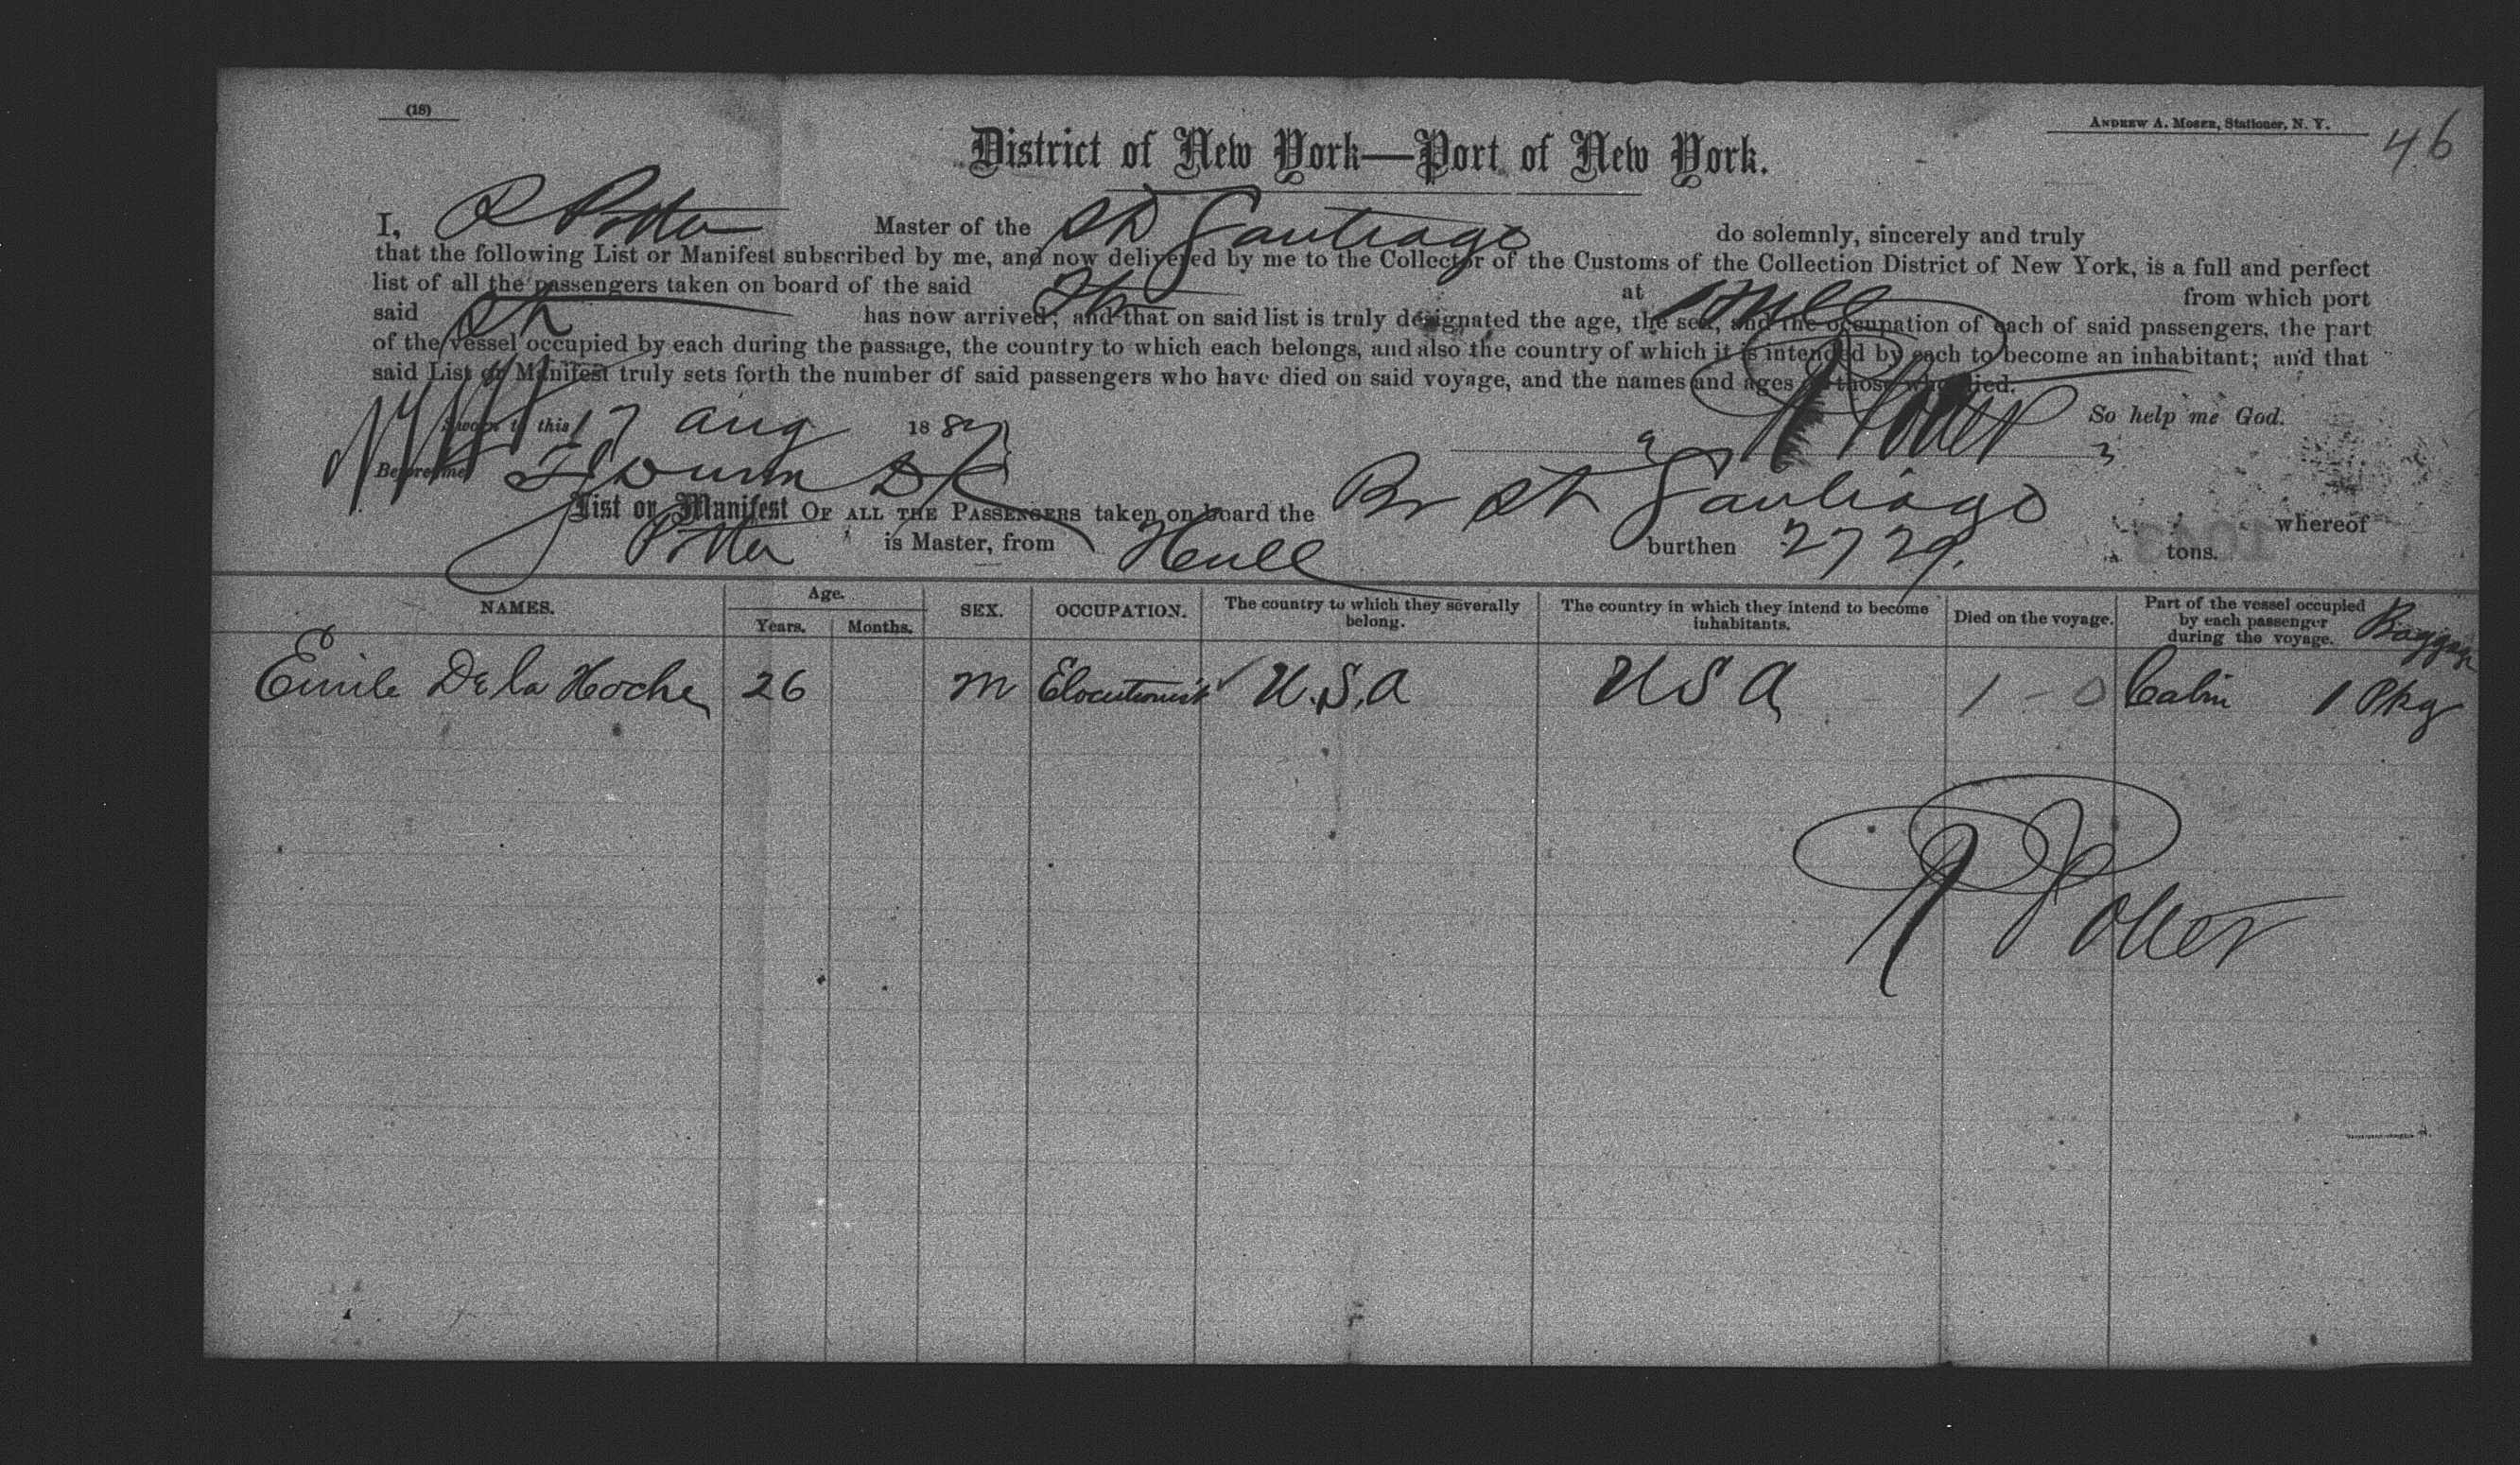 (18)
ANDREW A. MOSER, Stationer, N. Y.
46
District of New York—Port of New York.
I, R Potter Master of the SS Santiago do solemnly, sincerely and truly
that the following List or Manifest subscribed by me, and now delivered by me to the Collector of the Customs of the Collection District of New York, is a full and perfect
list of all the passengers taken on board of the said Str at Hull from which port
said Str has now arrived; and that on said list is truly designated the age, the sex, and the occupation of each of said passengers, the part
of the vessel occupied by each during the passage, the country to which each belongs, and also the country of which it is intended by each to become an inhabitant; and that
said List or Manifest truly sets forth the number of said passengers who have died on said voyage, and the names and ages of those who died.
Sworn to this 17 aug 188 So help me God.
R Potter
Before me
List or Manifest OF ALL THE PASSENGERS taken on board the Br Str Santiago whereof
Potter is Master, from Hull burthen 2729. tons.
NAMES. Age. Years. Months. SEX. OCCUPATION. The country to which they severally belong. The country in which they intend to become inhabitants. Died on the voyage. Part of the vessel occupied by each passenger during the voyage. Baggage
Emile De la Hoche 26 M Elocutionist U.S.A U S A 1 - 0 Cabin 1 Pkg
R Potter